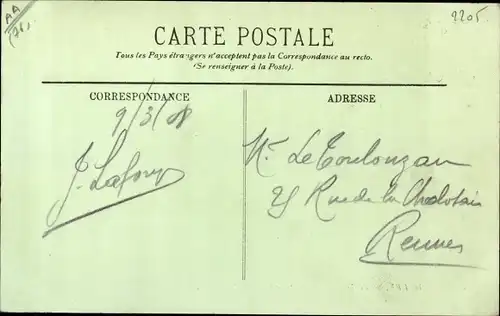 AA
(76)
2205
CARTE POSTALE
Tous les Pays étrangers n'acceptent pas la Correspondance au recto.
(Se renseigner à la Poste).
CORRESPONDANCE
9/3/08
J. Lafour
ADRESSE
Mr Le Toulouzan
25 Rue de la Chalotais
Rennes